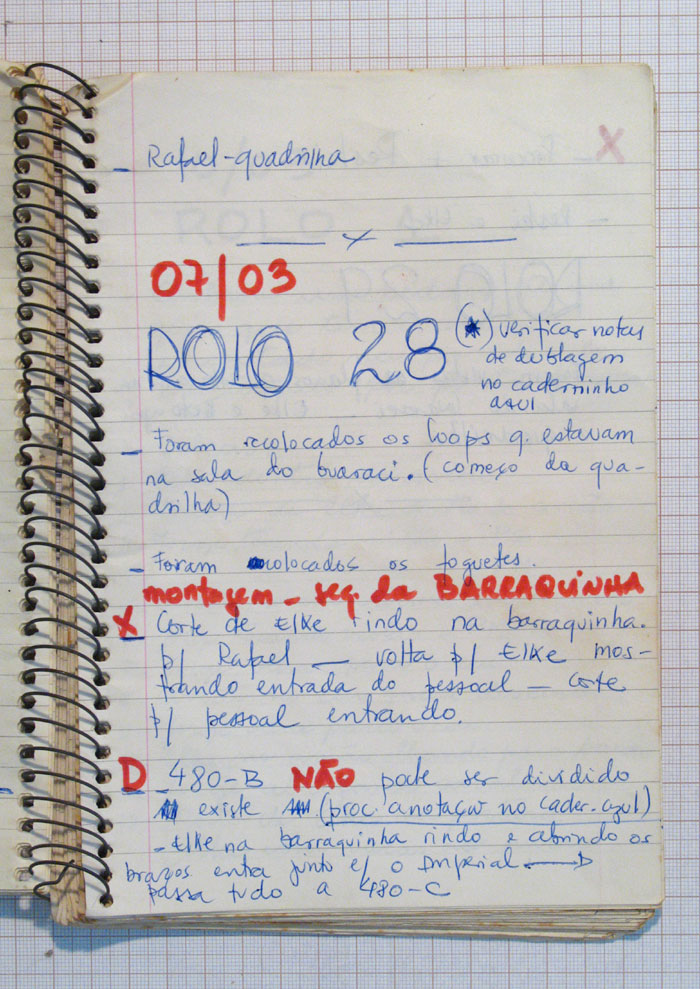 - Rafael - quadrilha
x
07/03
ROLO 28
(*) verificar notas
de dublagem
no caderninho
azul
- Foram recolocados os loops q. estavam
na sala do Guaraci. (começo da qua-
drilha)
- Foram colocados os foguetes.
montagem - seq. da BARRAQUINHA
X - Corte de Elke rindo na barraquinha.
p/ Rafael — volta p/ Elke mos-
trando entrada do pessoal — corte
p/ pessoal entrando.
D - 480-B NÃO pode ser dividido
existe (proc. anotaçar no cader. azul)
- Elke na barraquinha rindo e abrindo os
braços entra junto c/ o Imperial
passa tudo a 480-C